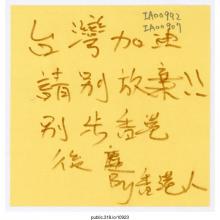 IA00992
IA00907
台灣加油
請別放棄!!
別步香港
後塵
By香港人
public.318.io/10923